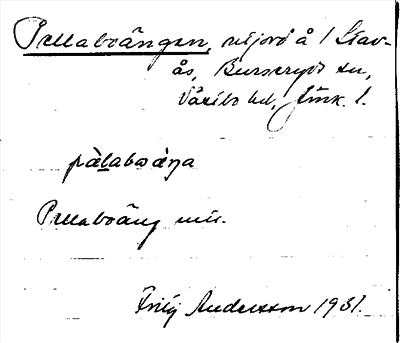 Pellaboängen, utjord å 1 Stav-
ås, Burseryds sn,
Västbo hd, Jönk. l.
pàlaboäŋa
Pellaboäng
Fritz Andersson 1931.